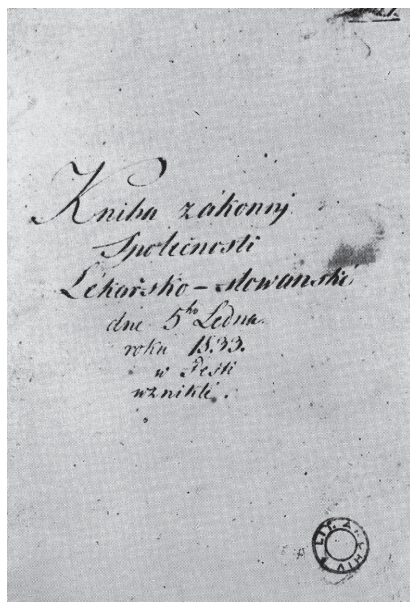 Kniha zákonnj
Společnosti
Lékařsko-slowanské
dne 5ho Ledna
roku 1833.
w Pešti
wzniklé.
LIT. ARCHIV